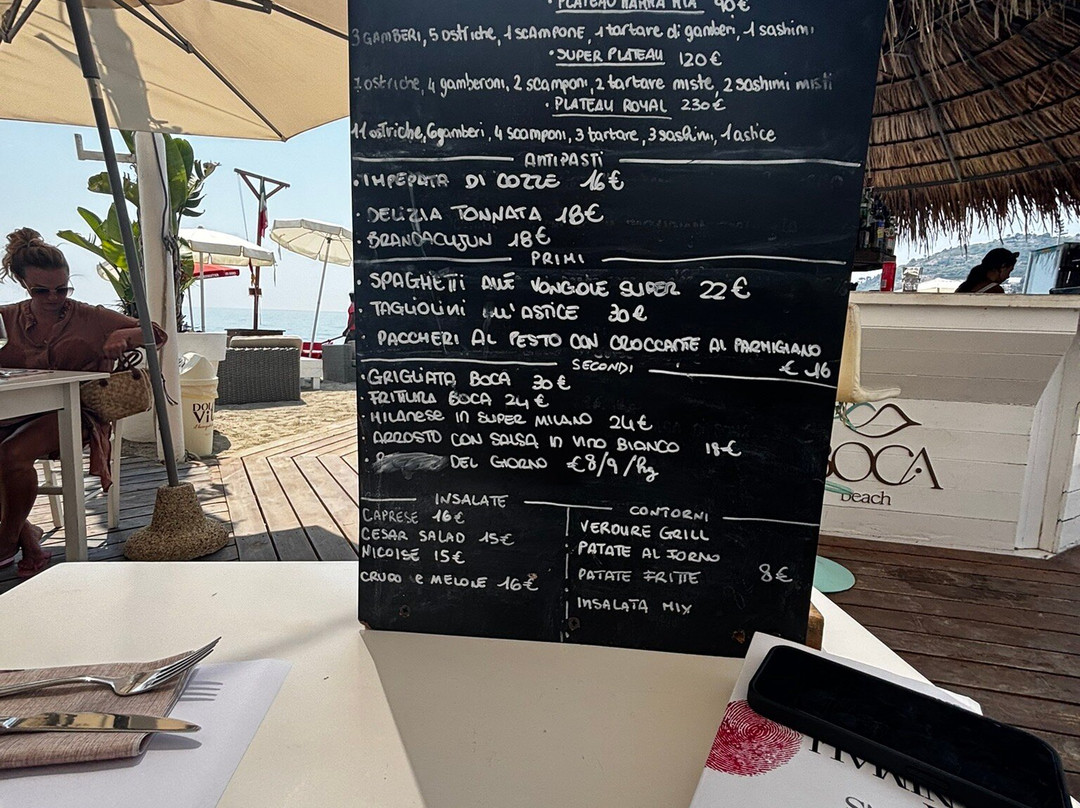 • PLATEAU MAMMA MIA 90€
3 GAMBERI, 5 ostriche, 1 scampone, 1 tartare di gamberi, 1 sashimi
• SUPER PLATEAU 120€
7 ostriche, 4 gamberoni, 2 scamponi, 2 tartare miste, 2 sashimi misti
• PLATEAU ROYAL 230€
11 ostriche, 6 gamberi, 4 scamponi, 3 tartare, 3 sashimi, 1 astice
ANTIPASTI
• IMPEPATA DI COZZE 16€
• DELIZIA TONNATA 18€
• BRANDACUJUN 18€
PRIMI
• SPAGHETTI ALLE VONGOLE SUPER 22€
• TAGLIOLINI ALL'ASTICE 30€
• PACCHERI AL PESTO CON CROCCANTE AL PARMIGIANO
€ 16
SECONDI
• GRIGLIATA BOCA 30€
• FRITTURA BOCA 24€
• MILANESE IN SUPER MILANO 24€
• ARROSTO CON SALSA IN VINO BIANCO 18€
• DEL GIORNO €8/9/hg
INSALATE
CAPRESE 16€
CESAR SALAD 15€
NICOISE 15€
CRUDO e MELONE 16€
CONTORNI
VERDURE GRILL
PATATE AL FORNO
PATATE FRITTE 8€
INSALATA MIX
BOCA
beach